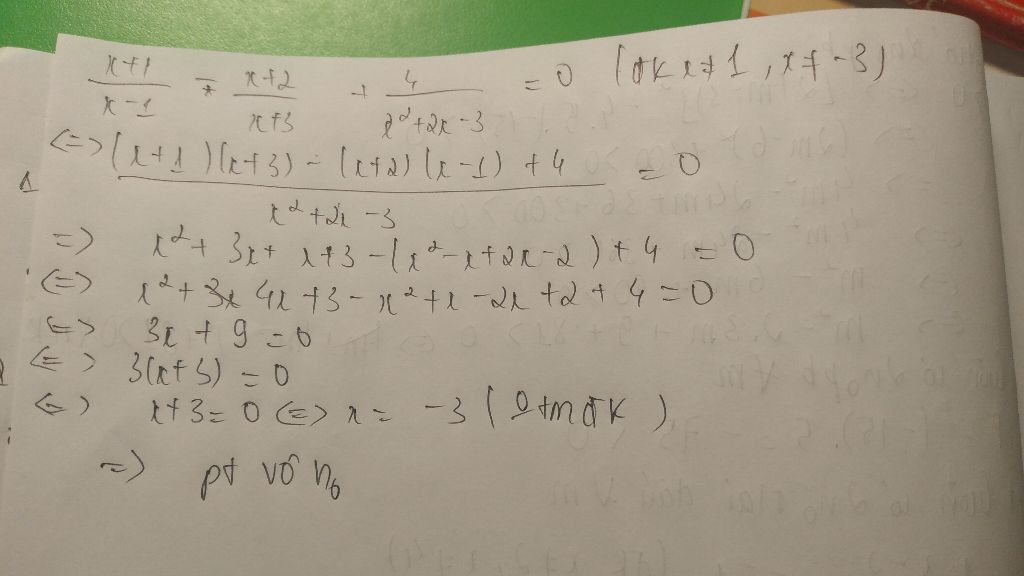 x+1/x-1 - x+2/x+3 + 4/x²+2x-3 = 0 (đk x≠1, x≠-3)
<=> (x+1)(x+3) - (x+2)(x-1) + 4 / x²+2x-3 = 0
=> x²+3x+x+3-(x²-x+2x-2)+4 = 0
<=> x²+3x 4x+3-x²+x-2x+2+4=0
<=> 3x+9=0
<=> 3(x+3)=0
<=> x+3=0 <=> x= -3 ( tmđk )
=> pt vô n₀